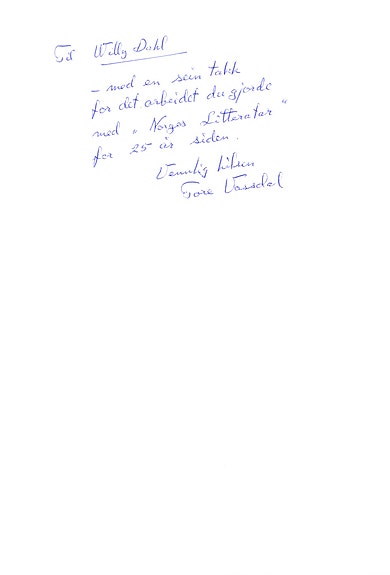 Til Willy Dahl
- med en sein takk
for det arbeidet du gjorde
med „Norges Litteratur"
for 25 år siden.
Vennlig hilsen
Tore Vassdal